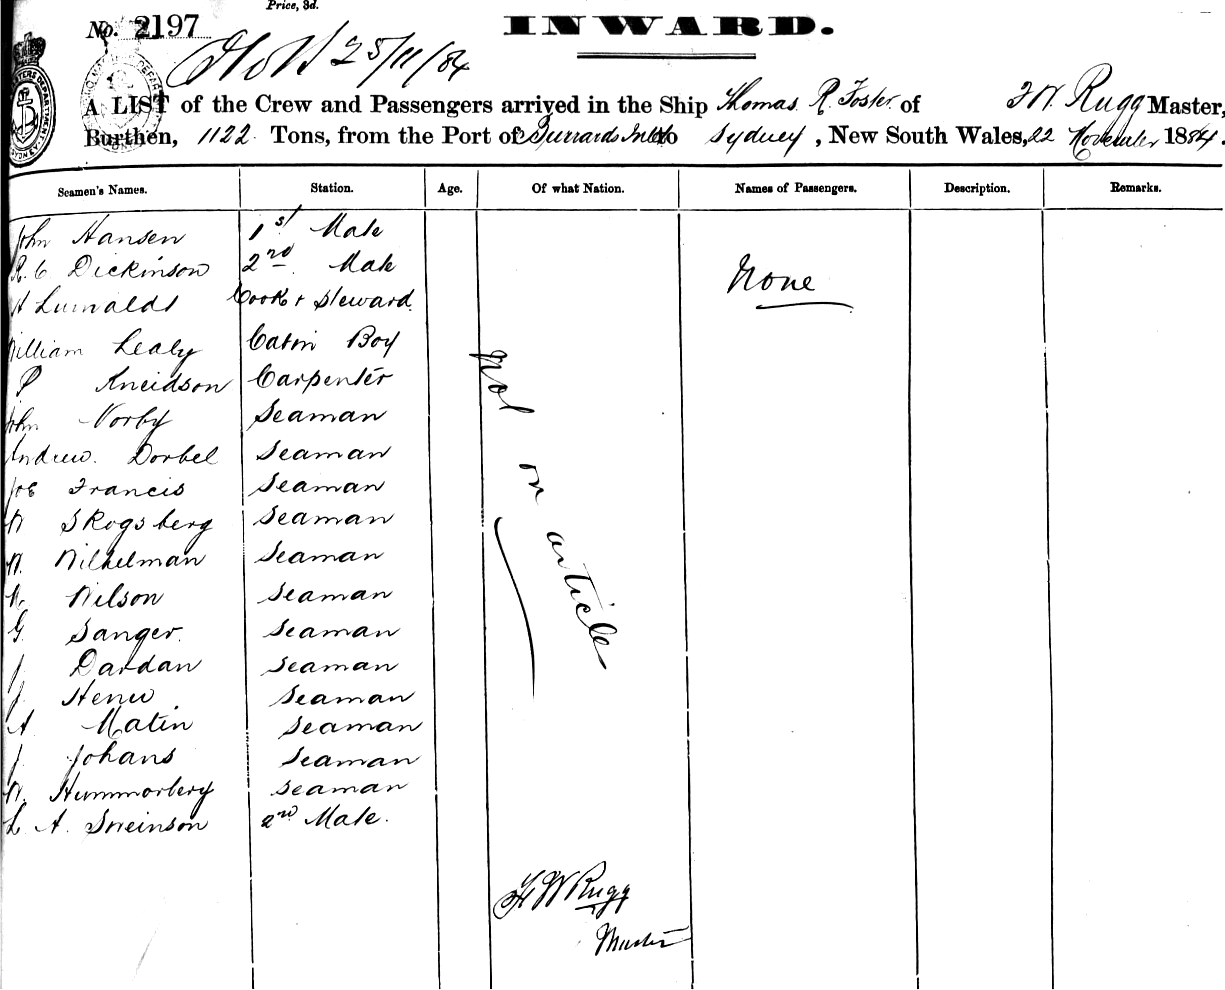 Price, 3d.
No. 2197
INWARD.
25/11/84
A LIST of the Crew and Passengers arrived in the Ship Thomas R. Foster of F W. Rugg Master,
Burthen, 1122 Tons, from the Port of Burrards Inlet to Sydney, New South Wales, 22 November 1884.
Seamen's Names. Station. Age. Of what Nation. Names of Passengers. Description. Remarks.
John Hansen 1st Mate
R. C Dickinson 2nd Mate None
Cook & Steward
William Lealy Cabin Boy
P Kneidson Carpenter
John Norby Seaman
Andrew. Dorbel Seaman
Joe Francis Seaman
N Skogsberg Seaman
W. Wilhelman Seaman
Wilson Seaman
G. Sanger. Seaman
J. Dardan Seaman
J. Seaman
A. Matin Seaman
J. Johans Seaman
Seaman
L. A. Sweinson 2nd Mate.
Not on article
F W Rugg
Master